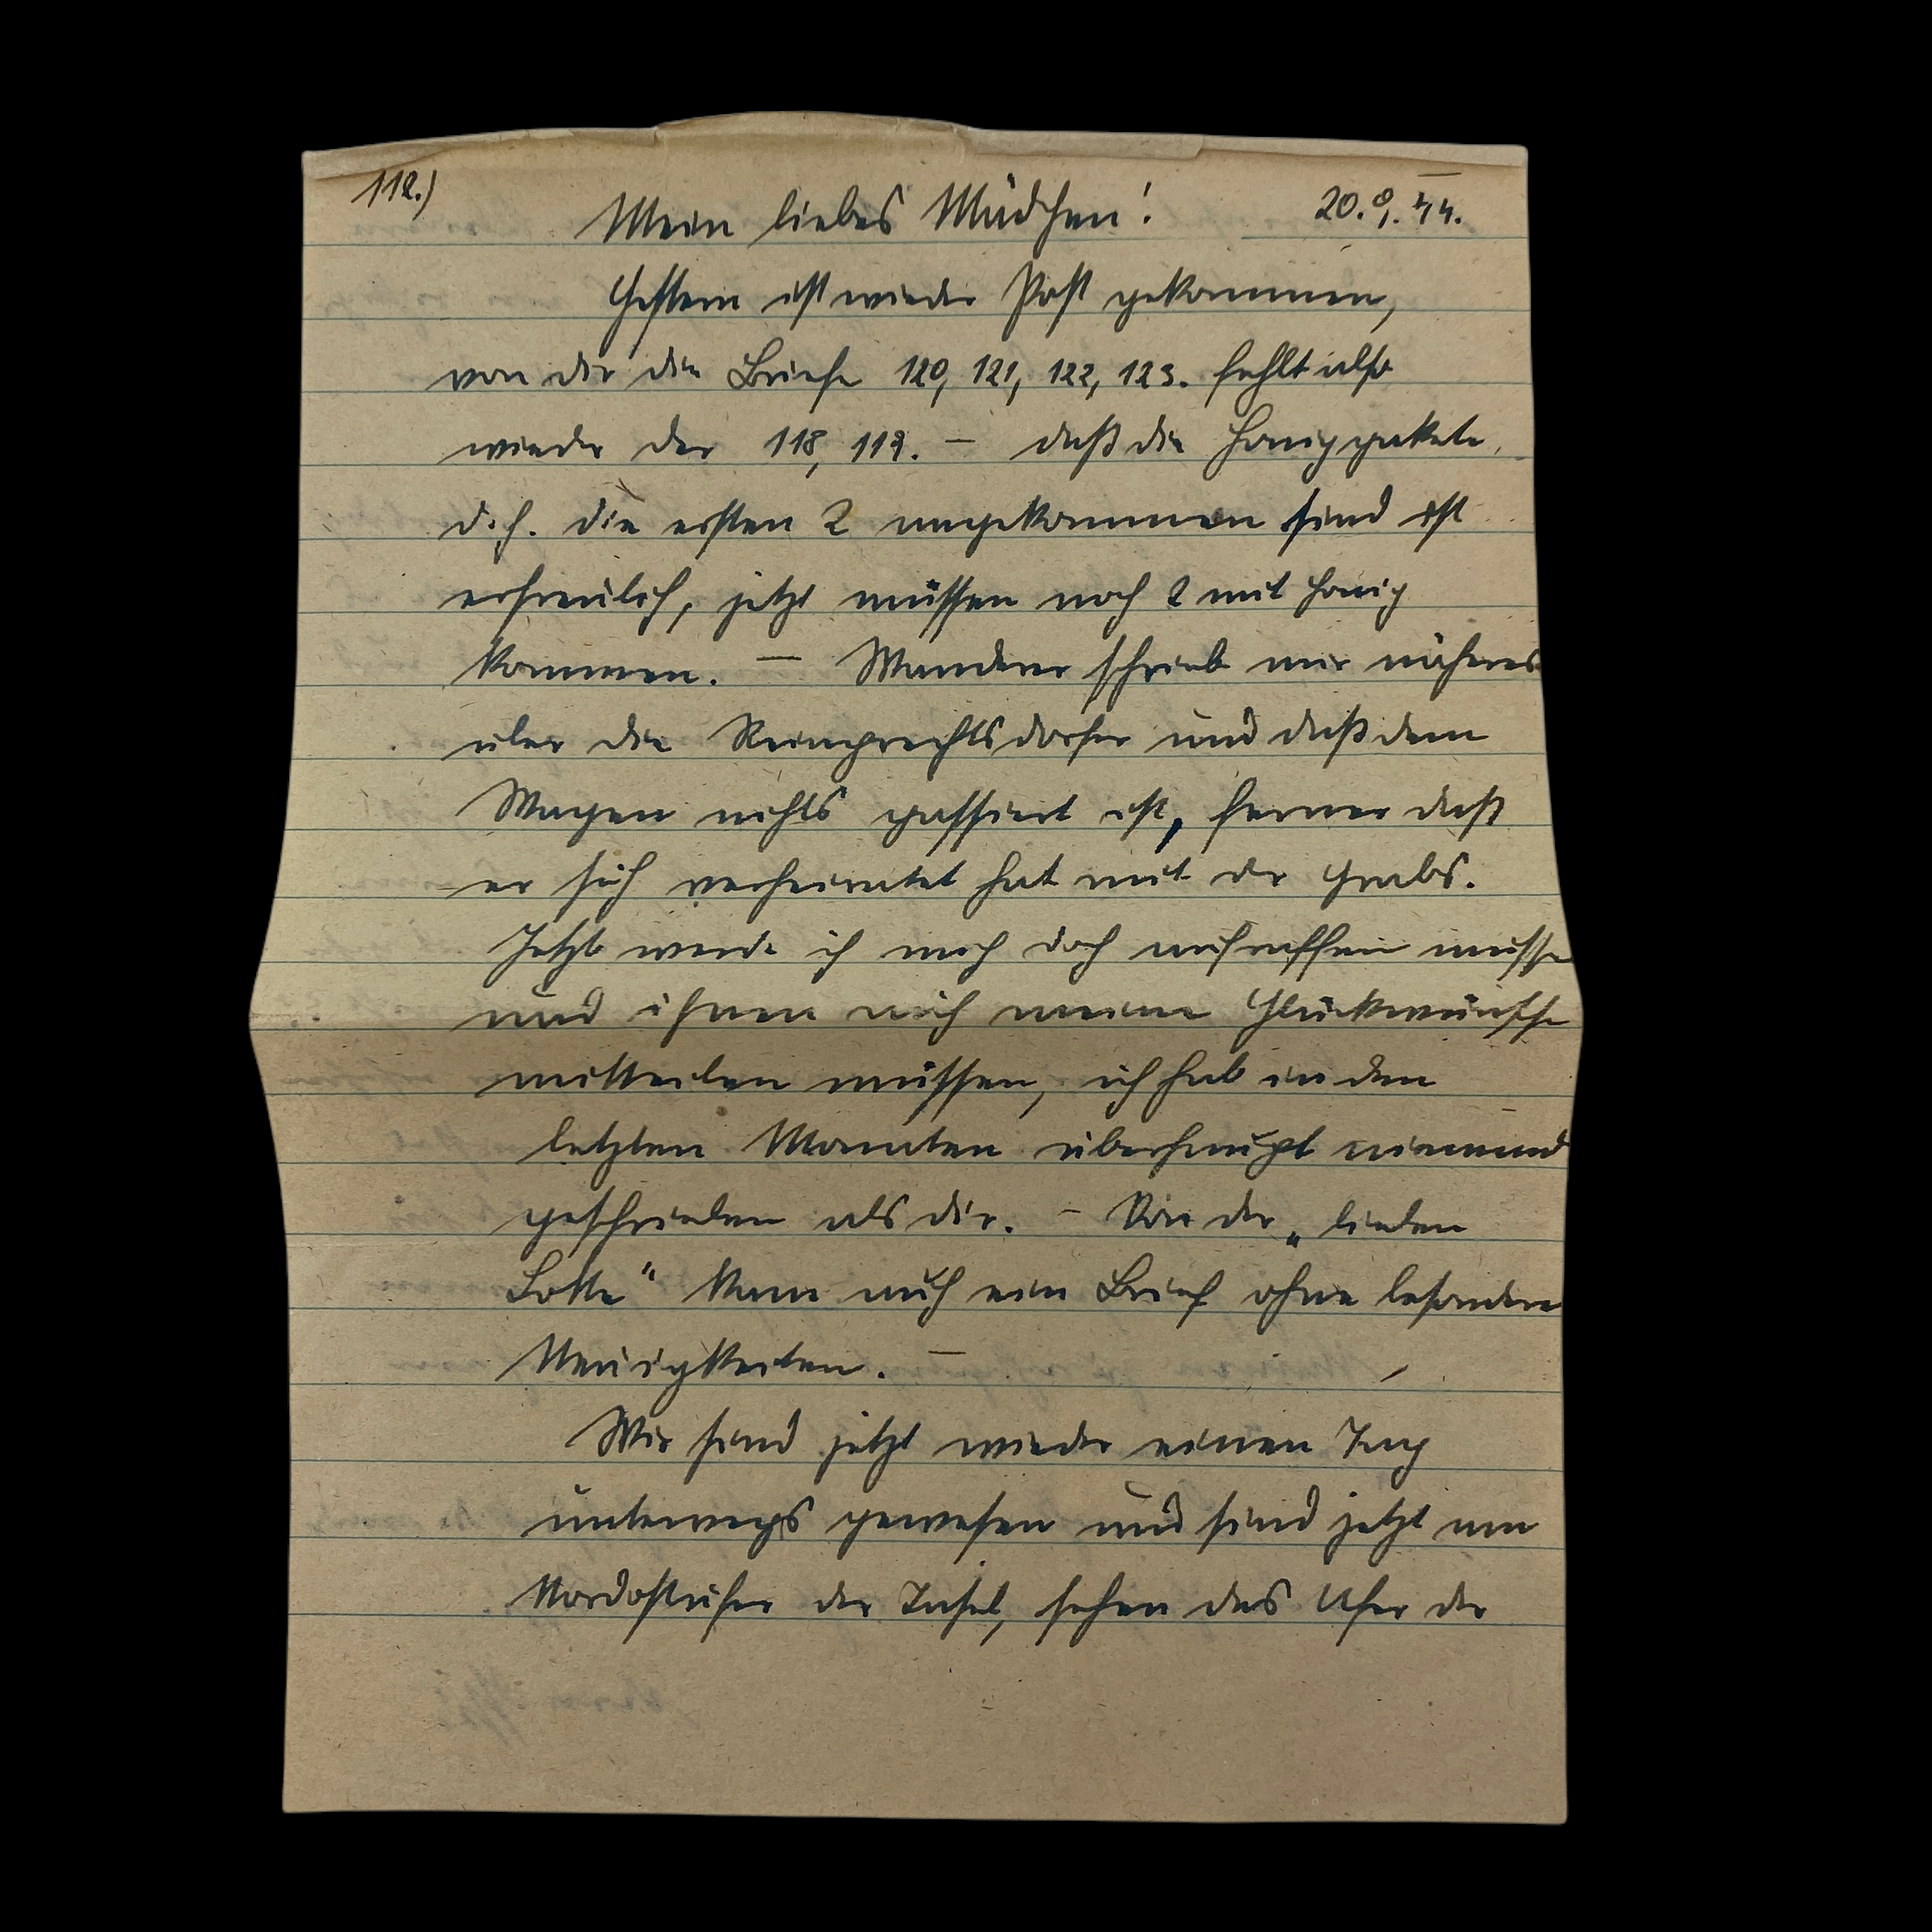 112.)
Mein liebes Mädchen! 20.9.44.
Gestern ist wieder Post gekommen,
von dir die Briefe 120, 121, 122, 123. fehlt also
wieder der 118, 119. – daß die Honigpakete,
d.h. die ersten 2 angekommen sind ist
erfreulich, jetzt müssen noch 2 mit Honig
kommen. – Wanderer schrieb mir näheres
über die Reinprechtsdorfer und daß dem
Wagen nichts passiert ist, ferner daß
er sich verheiratet hat mit der Grabs.
Jetzt werde ich mich doch aufraffen müssen
und ihnen auch meine Glückwünsche
mitteilen müssen, ich hab in den
letzten Monaten überhaupt niemand
geschrieben als dir. – Von der „lieben
Lotte" kam auch ein Brief ohne besondere
Neuigkeiten. –
Wir sind jetzt wieder einen Tag
unterwegs gewesen und sind jetzt am
Nordostufer der Insel, sehen das Ufer der